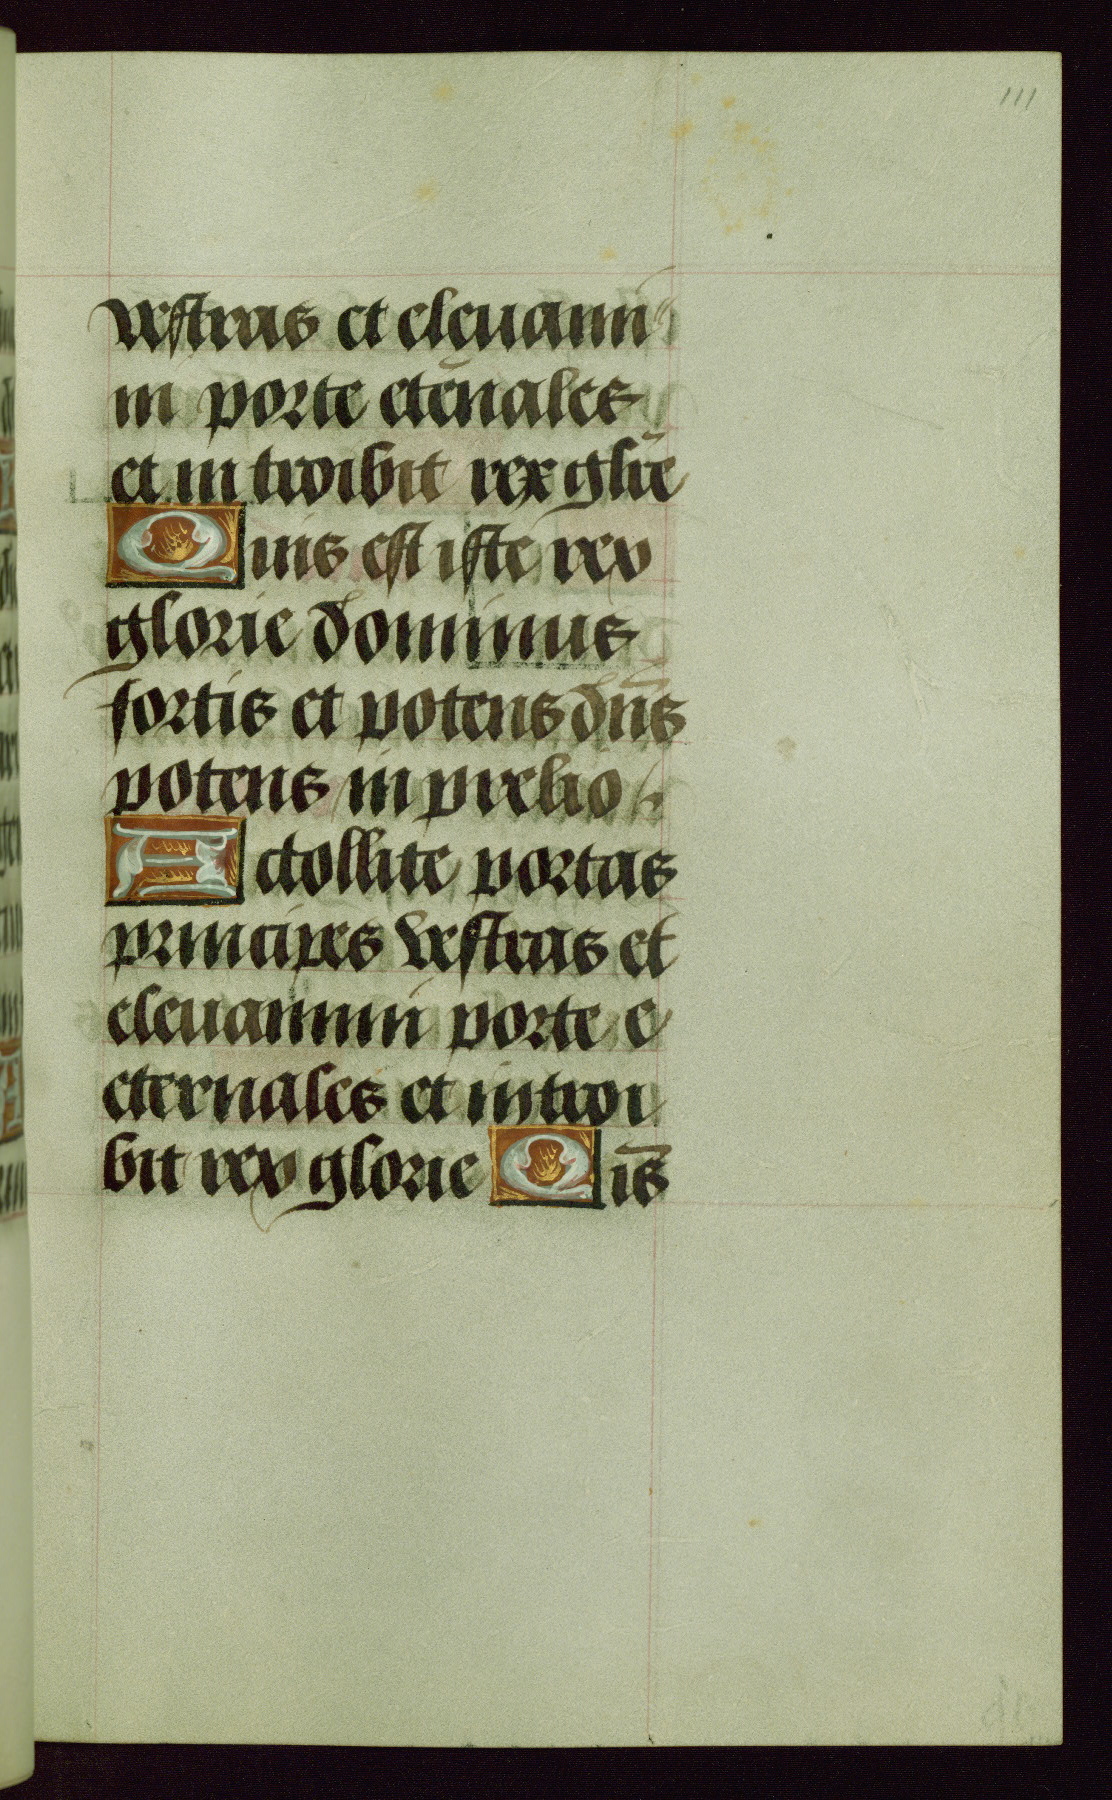 111
vestras et eleuami
ni porte etērnales
et introibit rex glīe
Quis est iste rex
glorie dominus
fortis et potens dn̄s
potens in prelio
Attollite portas
principes vestras et
eleuamini porte e
eternales et introi
bit rex glorie Qīs